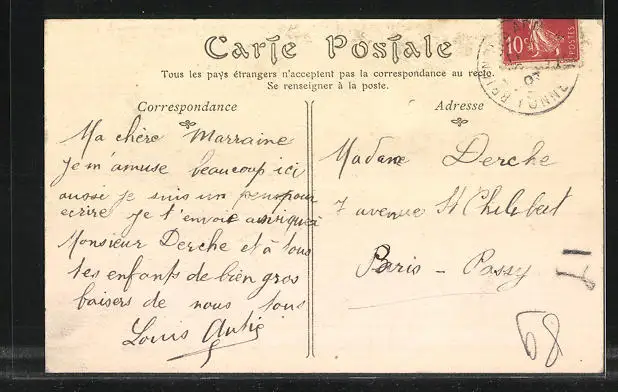 Carte Postale
Tous les pays étrangers n'acceptent pas la correspondance au recto.
Se renseigner à la poste.
Correspondance
Ma chère Marraine
je m'amuse beaucoup ici
aussi je suis un peu pour
ecrire je t'envoie ainsi qu'à
Monsieur Derche et à tous
tes enfants de bien gros
baisers de nous tous
Louis
Adresse
Madame Derche
7 avenue St Philibert
Paris - Passy
68
10c
POSTES